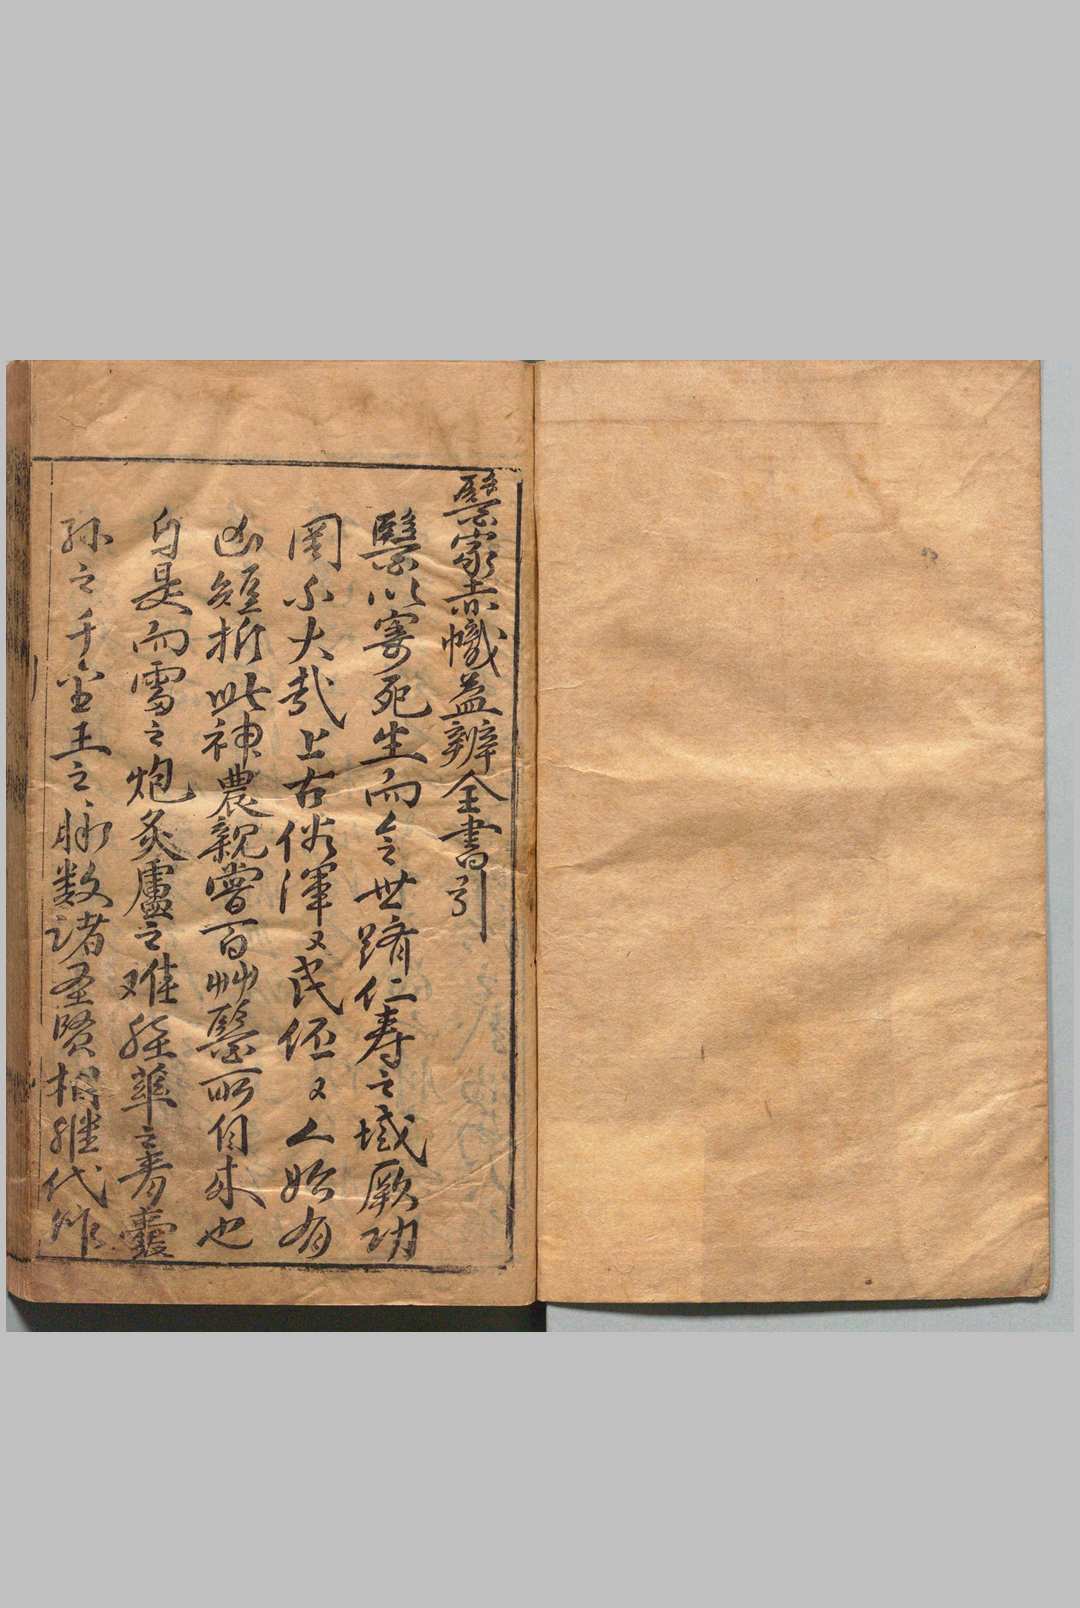 醫家赤幟益辨全書引
醫以寄死生而令世躋仁壽之域厥功
罔不大哉上古俗渾〻民伾〻人始有
凶短折此神農親嘗百艸醫所自来也
自是而雷之炮炙盧之难經華之青囊
孫之千金王之脉数諸圣賢相继代作